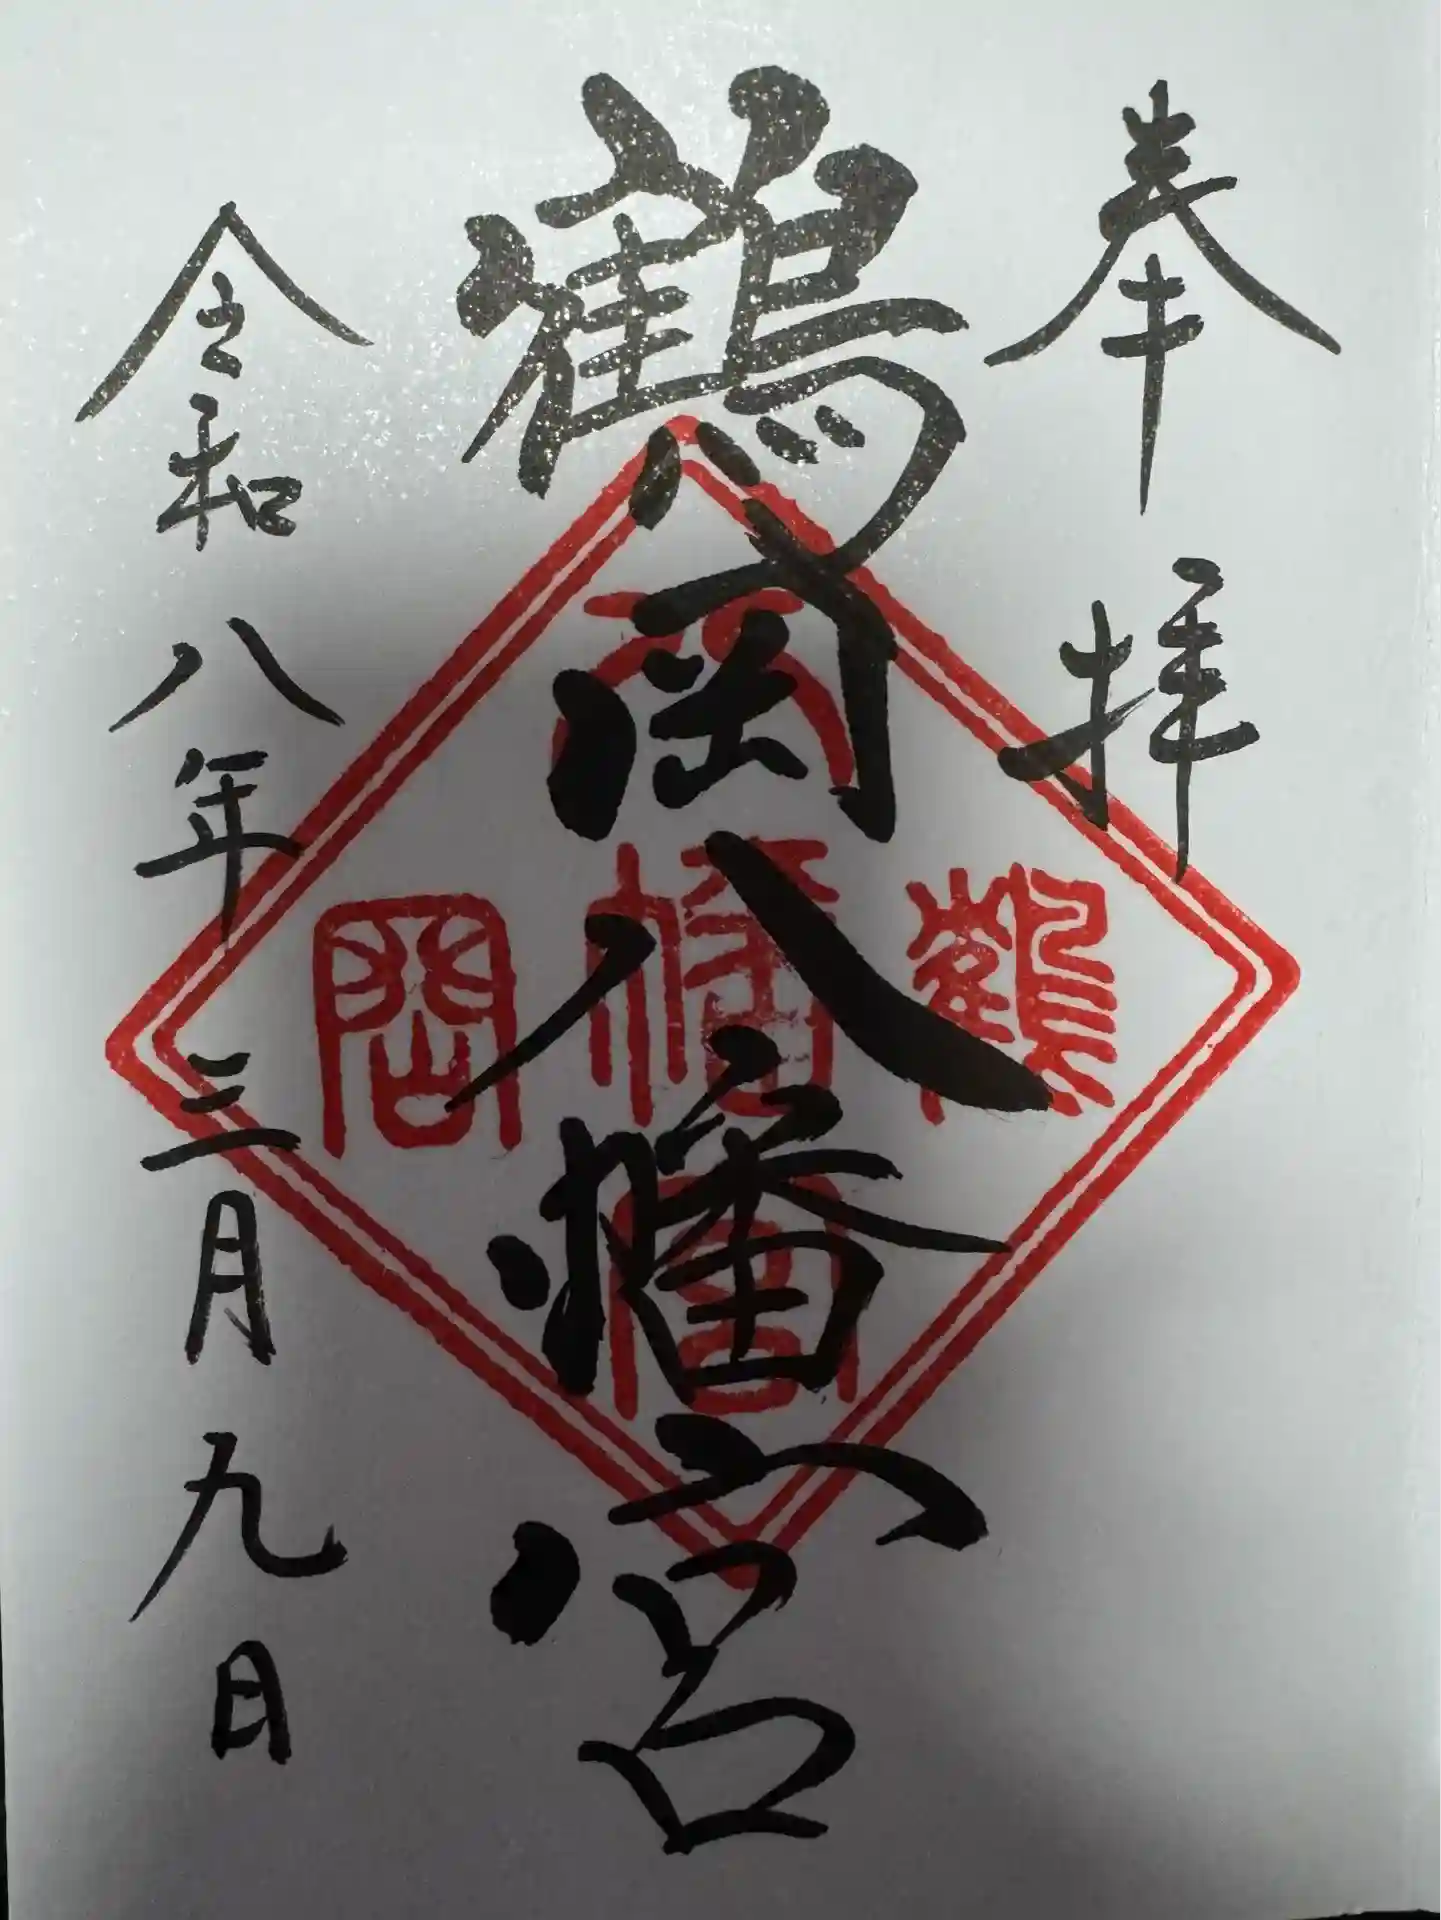 奉拝
鶴岡八幡宮
鶴
八幡宮
岡
令和八年三月九日